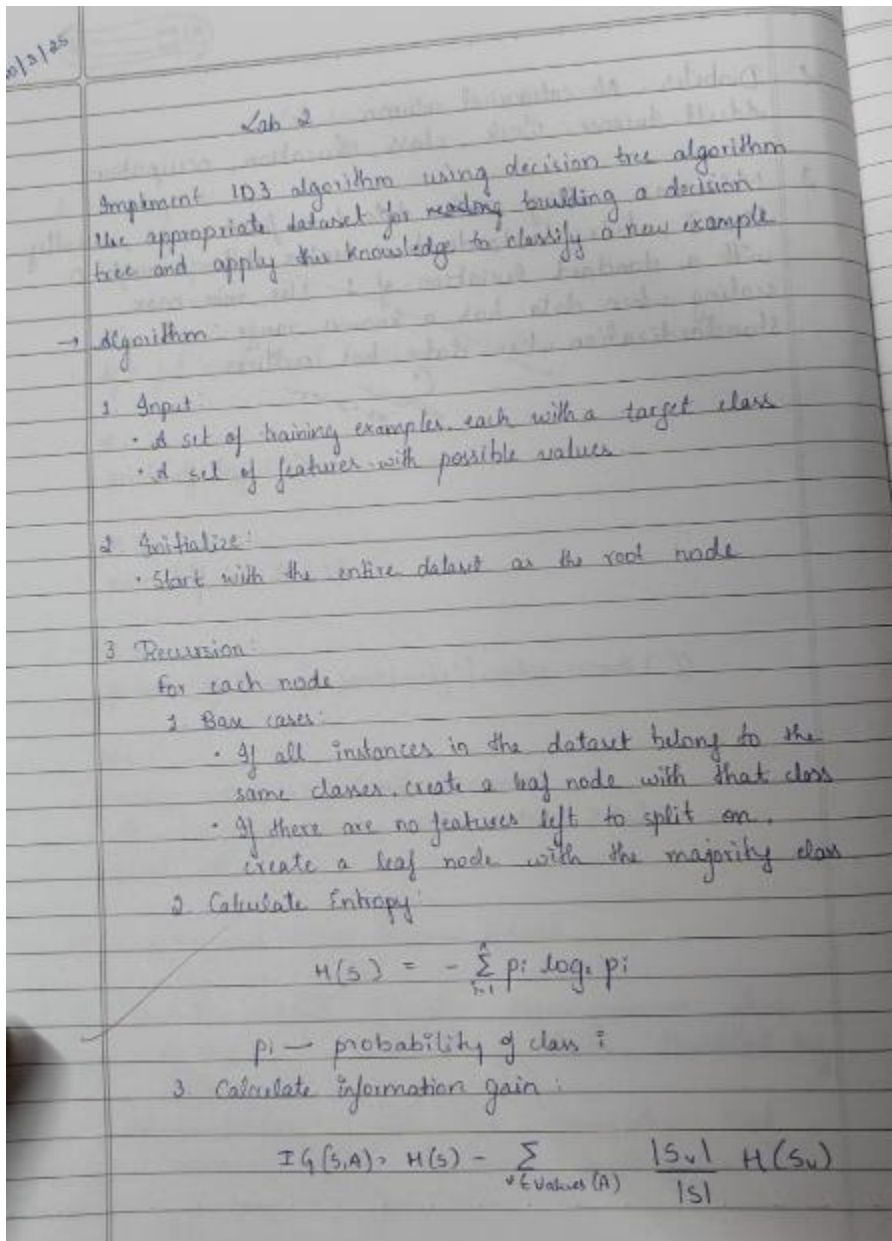 /3/25
Lab 2
Implement ID3 algorithm using decision tree algorithm
Use appropriate dataset for reading building a decision
tree and apply this knowledge to classify a new example
→ Algorithm
1 Input:
• A set of training examples, each with a target class
• A set of features with possible values
2 Initialize:
• Start with the entire dataset as the root node
3 Recursion:
for each node
1 Base cases:
• If all instances in the dataset belong to the
same classes, create a leaf node with that class
• If there are no features left to split on,
create a leaf node with the majority class
2. Calculate Entropy:
H(S) = - Σ_{i=1}^{n} pi log₂ pi
pi → probability of class i
3. Calculate information gain:
IG(S,A) = H(S) - Σ_{v∈Values(A)} |Sv|/|S| H(Sv)